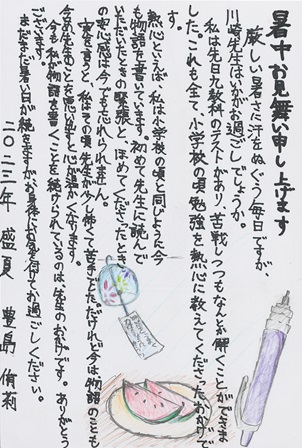 暑中お見舞い申し上げます
厳しい暑さに汗をぬぐう毎日ですが、
川崎先生はいかがお過ごしでしょうか。
私は先日九教科のテストがあり、苦戦しつつもなんとか解くことができま
した。これも全て、小学校の頃勉強を熱心に教えてくださったおかげで
す。
熱心といえば、私は小学校の頃と同じように今
も物語を書いています。初めて先生に読んで
いただいたときの緊張と、ほめてくださったとき
の安心感は今でも忘れられません。
実を言うと、私はその頃先生が少し怖くて苦手でしただけれど今は物語のことも
今も私が物語を書くことを続けられているのは、先生のおかげです。ありがとう
ございます。
まだまだ暑い日が続きますがお身体にお気を付けてお過ごしください。
二〇二三年 盛夏 豊島